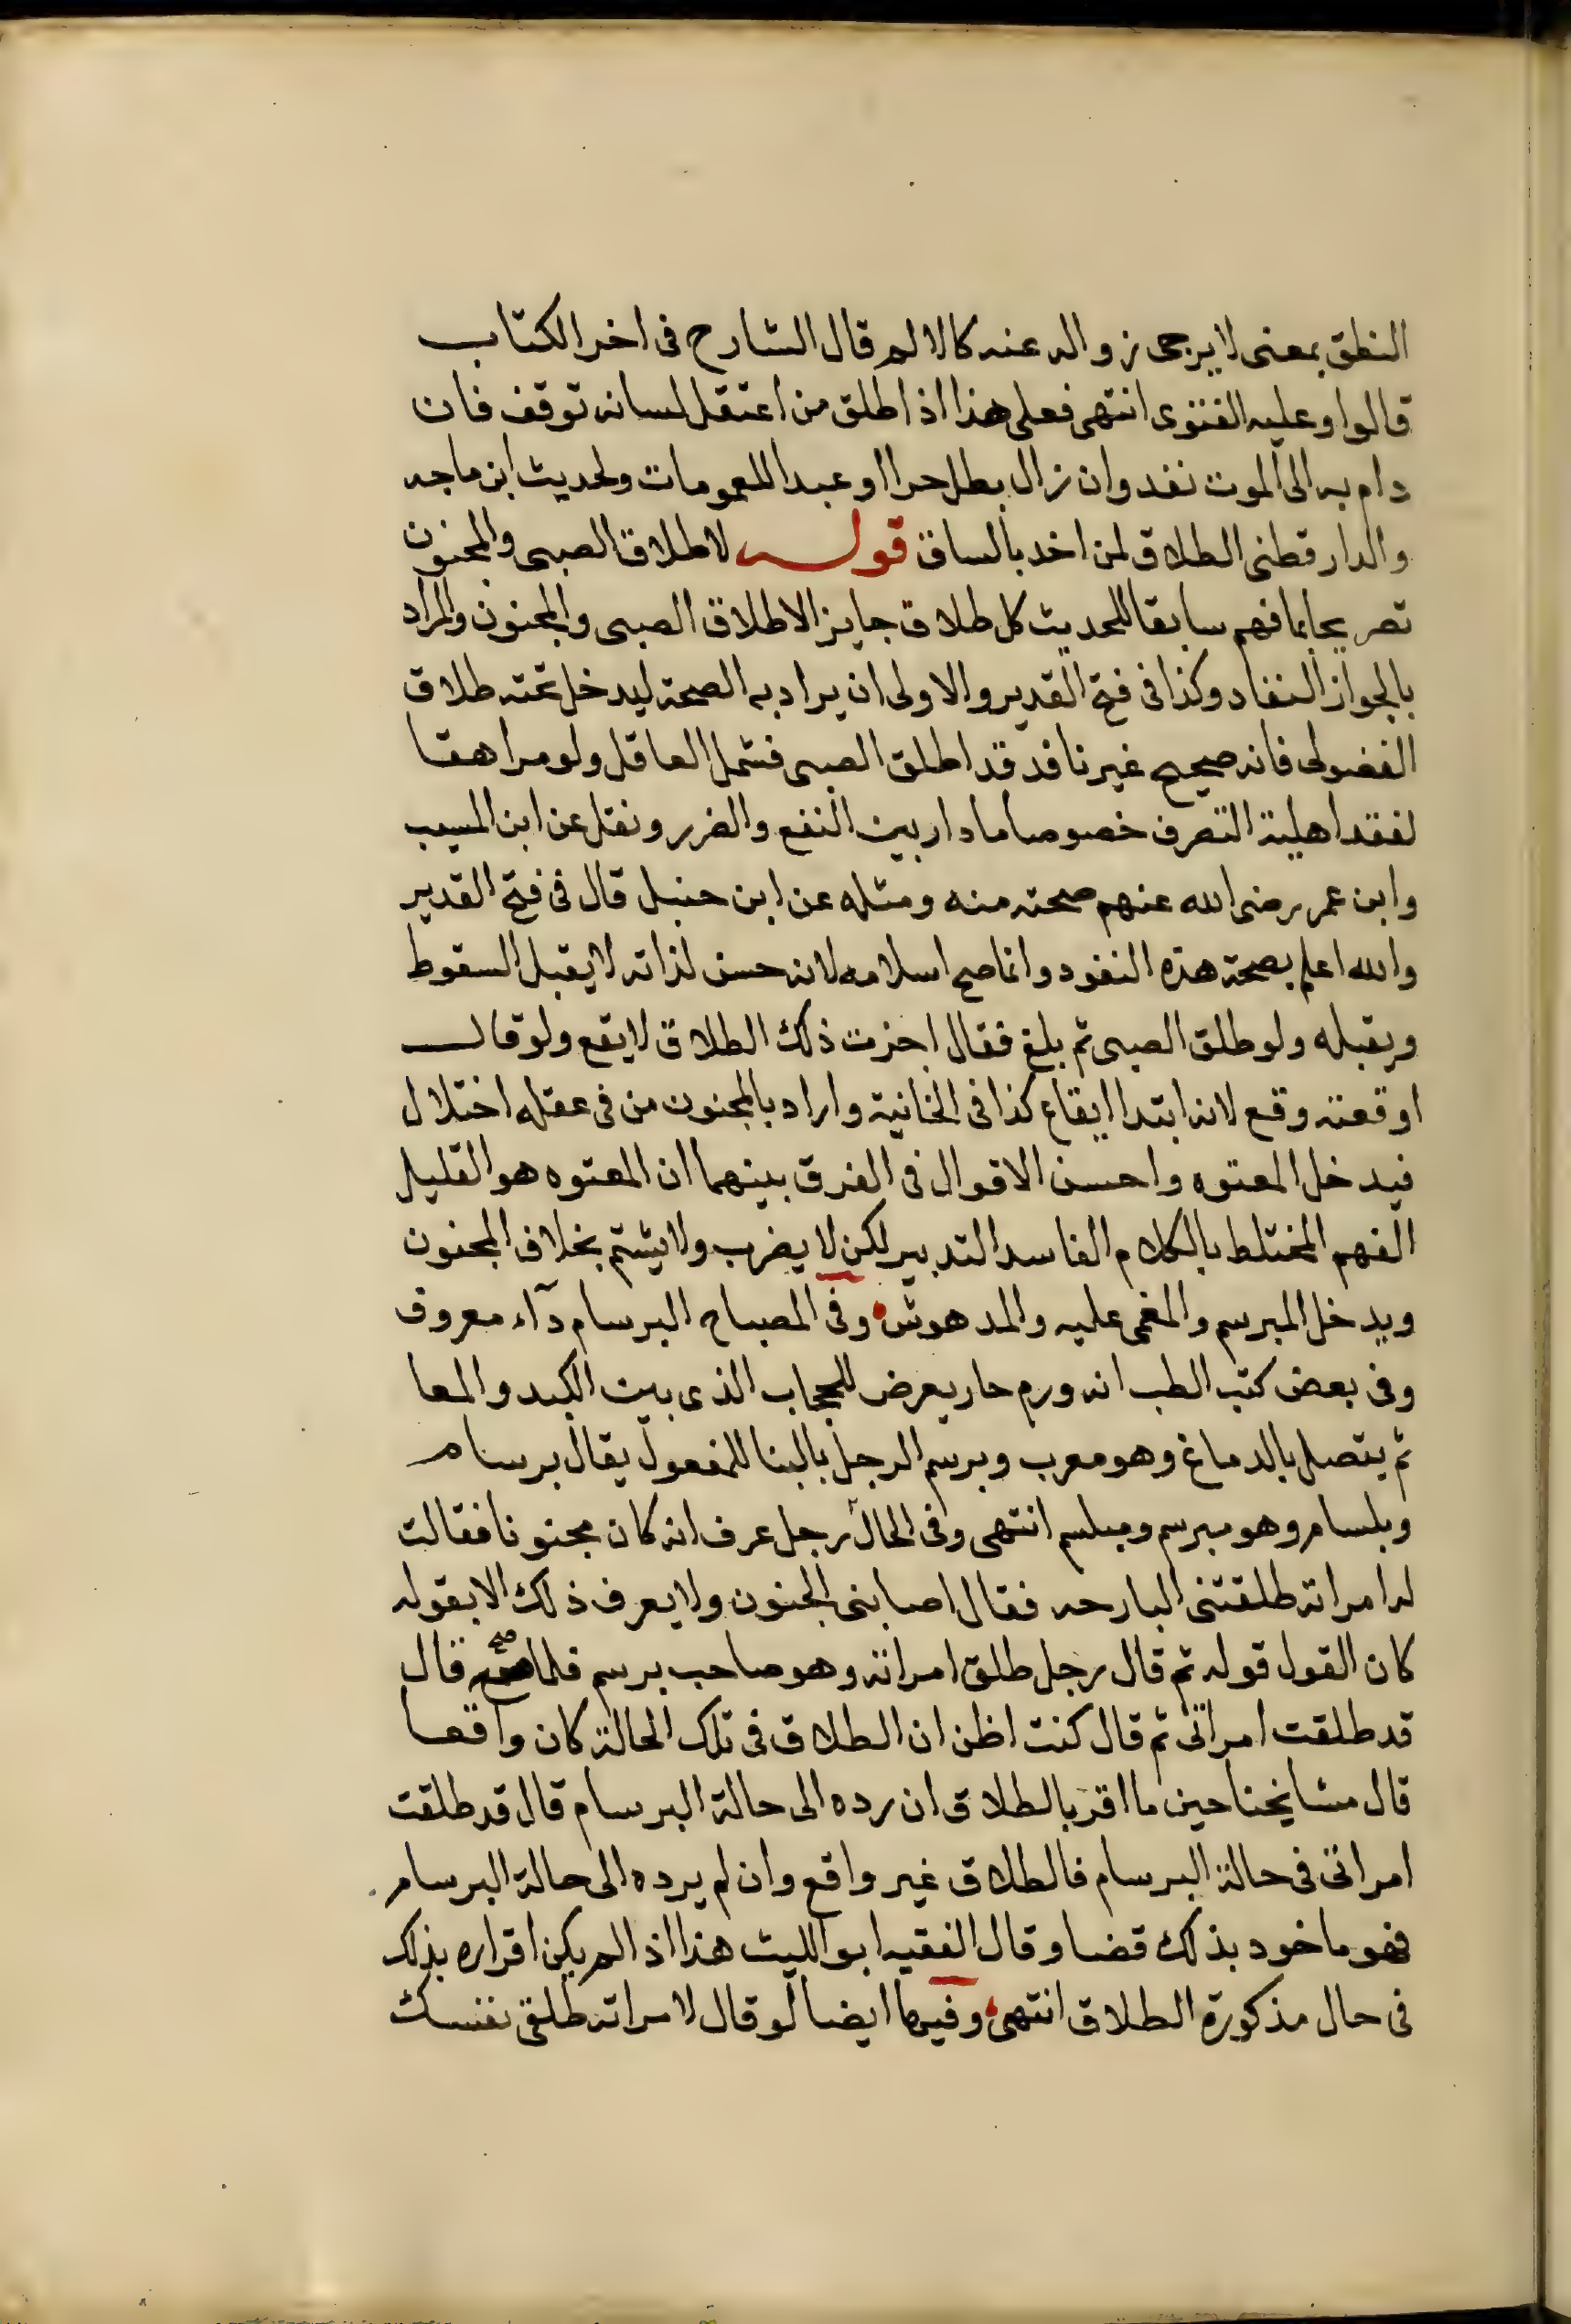 النطق بمعنى لا يرجى زواله عنه كالالم قال الشارح فى اخر الكتاب
قالوا وعليه الفتوى انتهى فعلى هذا اذا طلق من اعتقل لسانه توقف فان
دام به الى الموت نفد وان زال بطل حرا او عبدا للعمومات ولحديث ابن ماجه
والدار قطنى الطلاق لمن اخد بالساق قوله لا طلاق الصبى والمجنون
تصريحا بما فهم سابقا للحديث كل طلاق جايز الا طلاق الصبى والمجنون والمراد
بالجواز النفاد وكذا فى فتح القدير والاولى ان يراد به الصحة ليدخل تحته طلاق
الفضولى فانه صحيح غير نافد قد اطلق الصبى فشمل العاقل ولو مراهقا
لفقد اهلية التصرف خصوصا ما دار بين النفع والضرر ونقل عن ابن المسيب
وابن عمر رضى الله عنهم صحته منه ومثله عن ابن حنبل قال فى فتح القدير
والله اعلم بصحة هذه النفود وانما صح اسلامه لانه حسن لذاته لا يقبل السقوط
ويقبله ولو طلق الصبى ثم بلغ فقال اجزت ذلك الطلاق لا يقع ولو قال
اوقعته وقع لانه ابتدا ايقاع كذا فى الخانية واراد بالمجنون من فى عقله اختلال
فيدخل المعتوه واحسن الاقوال فى الفرق بينهما ان المعتوه هو القليل
الفهم المختلط بالكلام الفاسد التدبير لكن لا يضرب ولا يشتم بخلاف المجنون
ويدخل المبرسم والمغمى عليه والمدهوش وفى المصباح البرسام دآء معروف
وفى بعض كتب الطب انه ورم حار يعرض للحجاب الذى بين الكبد والمعا
ثم يتصل بالدماغ وهو معرب وبرسم الرجل بالبنا للمفعول يقال برسام
وبلسام وهو مبرسم ومبلسم انتهى وفى الخال رجل عرف انه كان مجنونا فقالت
له امراته طلقتنى البارحه فقال اصابنى الجنون ولا يعرف ذلك الا بقوله
كان القول قوله ثم قال رجل طلق امراته وهو صاحب برسم فلما صح قال
قد طلقت امراتى ثم قال كنت اظن ان الطلاق فى تلك الحالة كان واقعا
قال مشايخنا حين ما اقر بالطلاق ان رده الى حالة البرسام قال قد طلقت
امراتى فى حالة البرسام فالطلاق غير واقع وان لم يرده الى حالة البرسام
فهو ماخود بذلك قضا وقال الفقيه ابو الليث هذا اذا لم يكن اقراره بذلك
فى حال مذكورة الطلاق انتهى وفيها ايضا لو قال لامراته طلقى نفسك